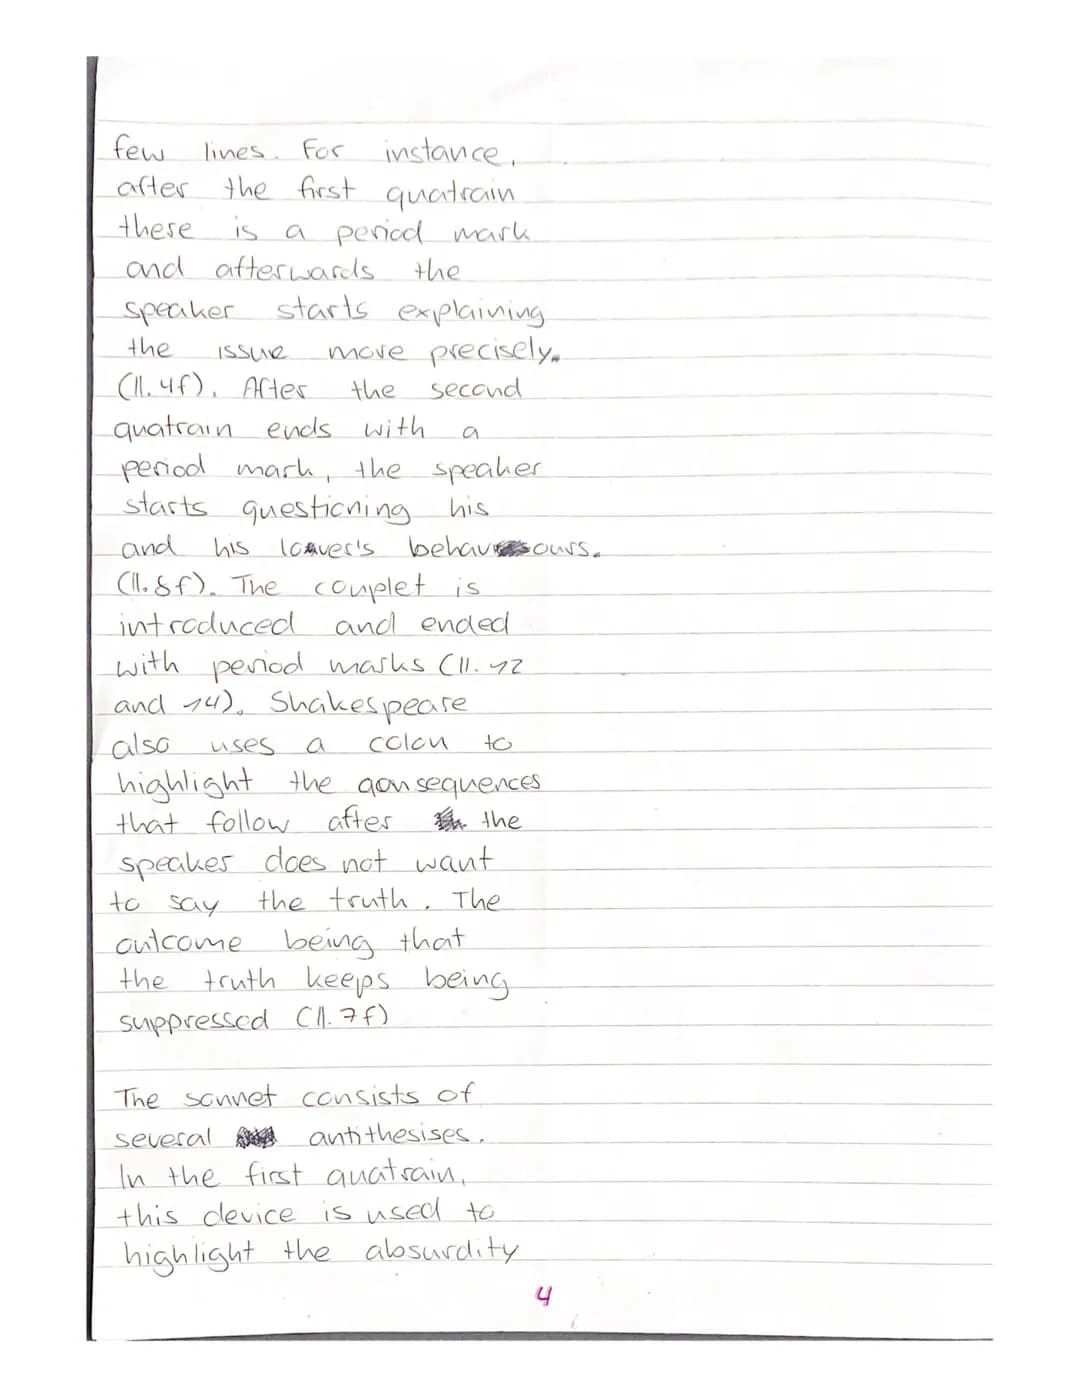 few lines. For instance,
after the first quatrain
there is a period mark
and afterwards the
speaker starts explaining
the issue more precisely.
(ll. 4f). After the second
quatrain ends with a
period mark, the speaker
starts questioning his
and his lover's behaviours.
(ll. 8f). The couplet is
introduced and ended
with period marks (ll. 12
and 14). Shakespeare
also uses a colon to
highlight the consequences
that follow after the
speaker does not want
to say the truth. The
outcome being that
the truth keeps being
suppressed (ll. 7f)
The sonnet consists of
several antithesises.
In the first quatrain,
this device is used to
highlight the absurdity
4